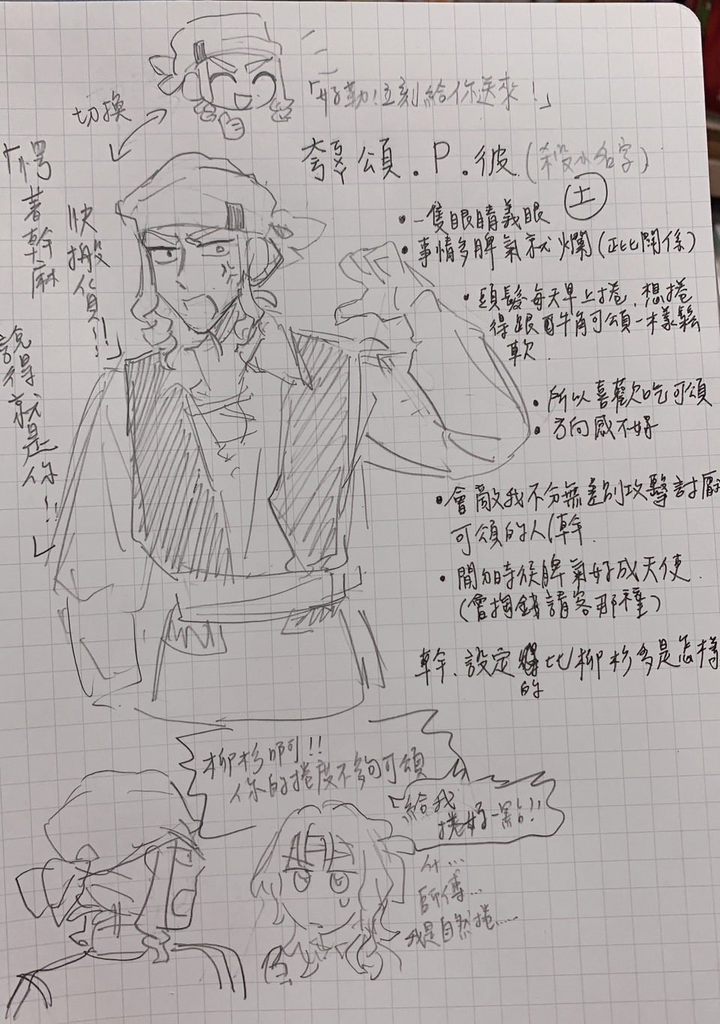 「好勒!立刻給你送來!」
切換
「愣著幹麻
快搬貨!!
說得就是你!!」
頌.P.彼(殺小名字)
土
•一隻眼睛義眼
•事情多脾氣就爛(正比關係)
•頭髮每天早上捲,想捲
得跟牛角可頌一樣鬆
軟.
•所以喜歡吃可頌
•方向感不好
•會敵我不分無差別攻擊討厭
可頌的人(幹.
•閒的時候脾氣好成天使.
(會掏錢請客那種)
幹.設定的比柳杉多是怎樣
柳杉啊!!
你的捲度不夠可頌
「給我
捲好一點!!
什...
師傅...
我是自然捲......